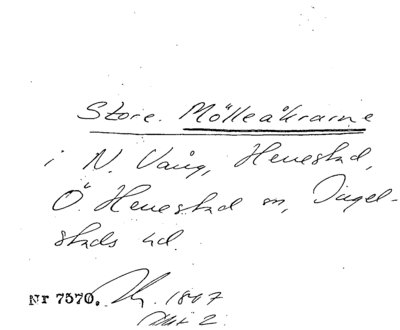 Store. Mölleåkrarne
i N. Vång, Henestad,
Ö. Henestad sn, Ingel-
stads hd.
Nr 7570. 1807
Akt 2